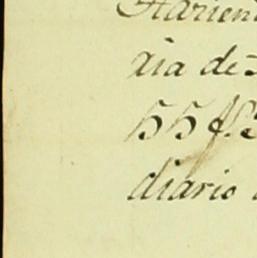 Harien
xia de
55 f.
diario